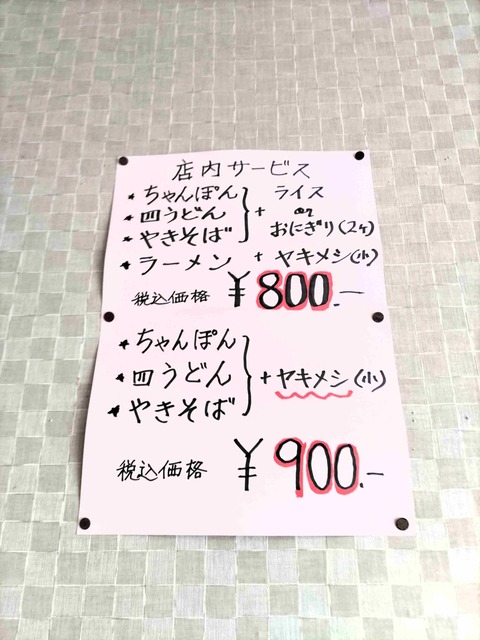 店内サービス
★ちゃんぽん
★四うどん
★やきそば
+ ライス
or
おにぎり(2ヶ)
★ラーメン + ヤキメシ(小)
税込価格 ¥800.―
★ちゃんぽん
★四うどん
★やきそば
+ヤキメシ(小)
税込価格 ¥900.―